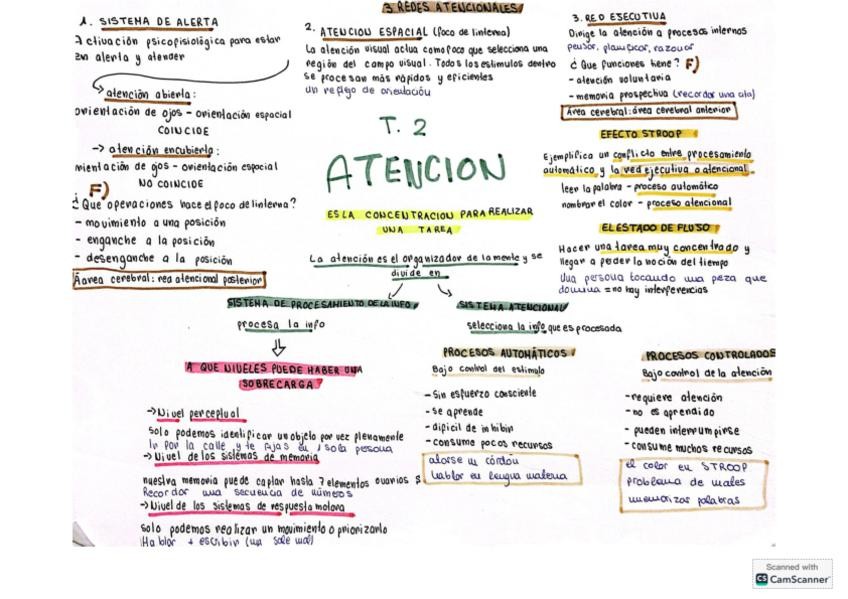 3 REDES ATENCIONALES
1. SISTEMA DE ALERTA
Activación psicofisiológica para estar
En alerta y atender
→ atención abierta:
orientación de ojos - orientación espacial
COINCIDE
→ atención encubierta:
orientación de ojos - orientación espacial
NO COINCIDE
F)
¿Que operaciones hace el foco de linterna?
- movimiento a una posición
- enganche a la posición
- desenganche a la posición
Área cerebral: red atencional posterior
2. ATENCION ESPACIAL (foco de linterna)
La atención visual actua como foco que selecciona una
región del campo visual. Todos los estimulos dentro
se procesan más rápidos y eficientes
un reflejo de orientación
3. RED EJECUTIVA
Dirige la atención a procesos internos
pensar, planificar, razonar
¿Que funciones tiene? F)
- atención voluntaria
- memoria prospectiva (recordar una cita)
Área cerebral: área cerebral anterior
EFECTO STROOP
Ejemplifica un conflicto entre procesamiento
automático y la red ejecutiva o atencional
leer la palabra - proceso automático
nombrar el color - proceso atencional
EL ESTADO DE FLUJO
Hacer una tarea muy concentrado y
llegar a perder la noción del tiempo
Una persona tocando una pieza que
domina = no hay interferencias
T. 2
ATENCION
ES LA CONCENTRACION PARA REALIZAR
UNA TAREA
La atención es el organizador de la mente y se
divide en
SISTEMA DE PROCESAMIENTO DE LA INFO
procesa la info
SISTEMA ATENCIONAL
selecciona la info que es procesada
A QUE NIVELES PUEDE HABER UNA
SOBRECARGA?
→ Nivel perceptual
solo podemos identificar un objeto por vez plenamente
Ir por la calle y te fijas en 1 sola persona
→ Nivel de los sistemas de memoria
nuestra memoria puede captar hasta 7 elementos
Recordar una secuencia de números
→ Nivel de los sistemas de respuesta motora
solo podemos realizar un movimiento o priorizarlo
Hablar + escribir (una sale mal)
PROCESOS AUTOMÁTICOS
Bajo control del estimulo
- Sin esfuerzo consciente
- se aprende
- dificil de inhibir
- consume pocos recursos
atarse un cordón
hablar en lengua materna
PROCESOS CONTROLADOS
Bajo control de la atención
- requiere atención
- no es aprendido
- pueden interrumpirse
- consume muchos recursos
el color en STROOP
problema de mates
memorizar palabras
Scanned with
CS CamScanner